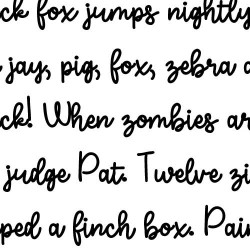 ck fox jumps nightly
jay, pig, fox, zebra a
ck! When zombies ar
judge Pat. Twelve zi
ped a finch box. Pai